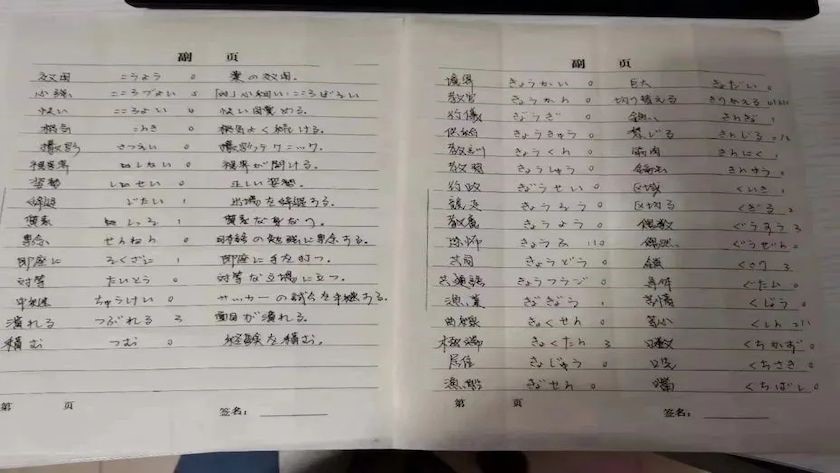 副 页
効用 こうよう 0 薬の効用。
心強い こころづよい 5
快い こころよい 4 快い
根気 こんき 0 根気よく続ける。
撮影 さつえい 0 撮影テクニック。
視界 0 視界が開ける。
姿勢 しせい 0 正しい姿勢。
辞退 じたい 1 出場を辞退する。
質素 1 質素な身なり。
専念 せんねん 0 の勉強に専念する。
即座に そくざに 1 即座に手を打つ。
対等 たいとう 0 対等な立場に立つ。
中継 ちゅうけい 0 サッカーの試合を中継する。
潰れる つぶれる 3 面目が潰れる。
積む つむ 0 経験を積む。
第 页
签名：
副 页
境界 きょうかい 0 巨大 きょだい 0
教官 きょうかん 0 切り替える きりかえる
行儀 ぎょうぎ 0
供給 きょうきゅう 0 禁じる きんじる
教訓 きょうくん 0 筋肉 きんにく 1
教習 きょうしゅう 0 きんゆう
行政 ぎょうせい 0 区域 くいき 1
区切る くぎる 2
教養 きょうよう 0 偶数 ぐうすう 3
恐怖 きょうふ 偶然 ぐうぜん 0
共同 きょうどう 0 鎖 くさり
共通語 きょうつうご 0 具体 ぐたい 0
漁業 ぎょぎょう 1 苦情 くじょう 0
曲線 きょくせん 0 苦心 くしん
極端 きょくたん 3 口数 くちかず 0
居住 きょじゅう 0 口先 くちさき 0
漁船 ぎょせん 0 嘴 くちばし 0
第 页
签名：